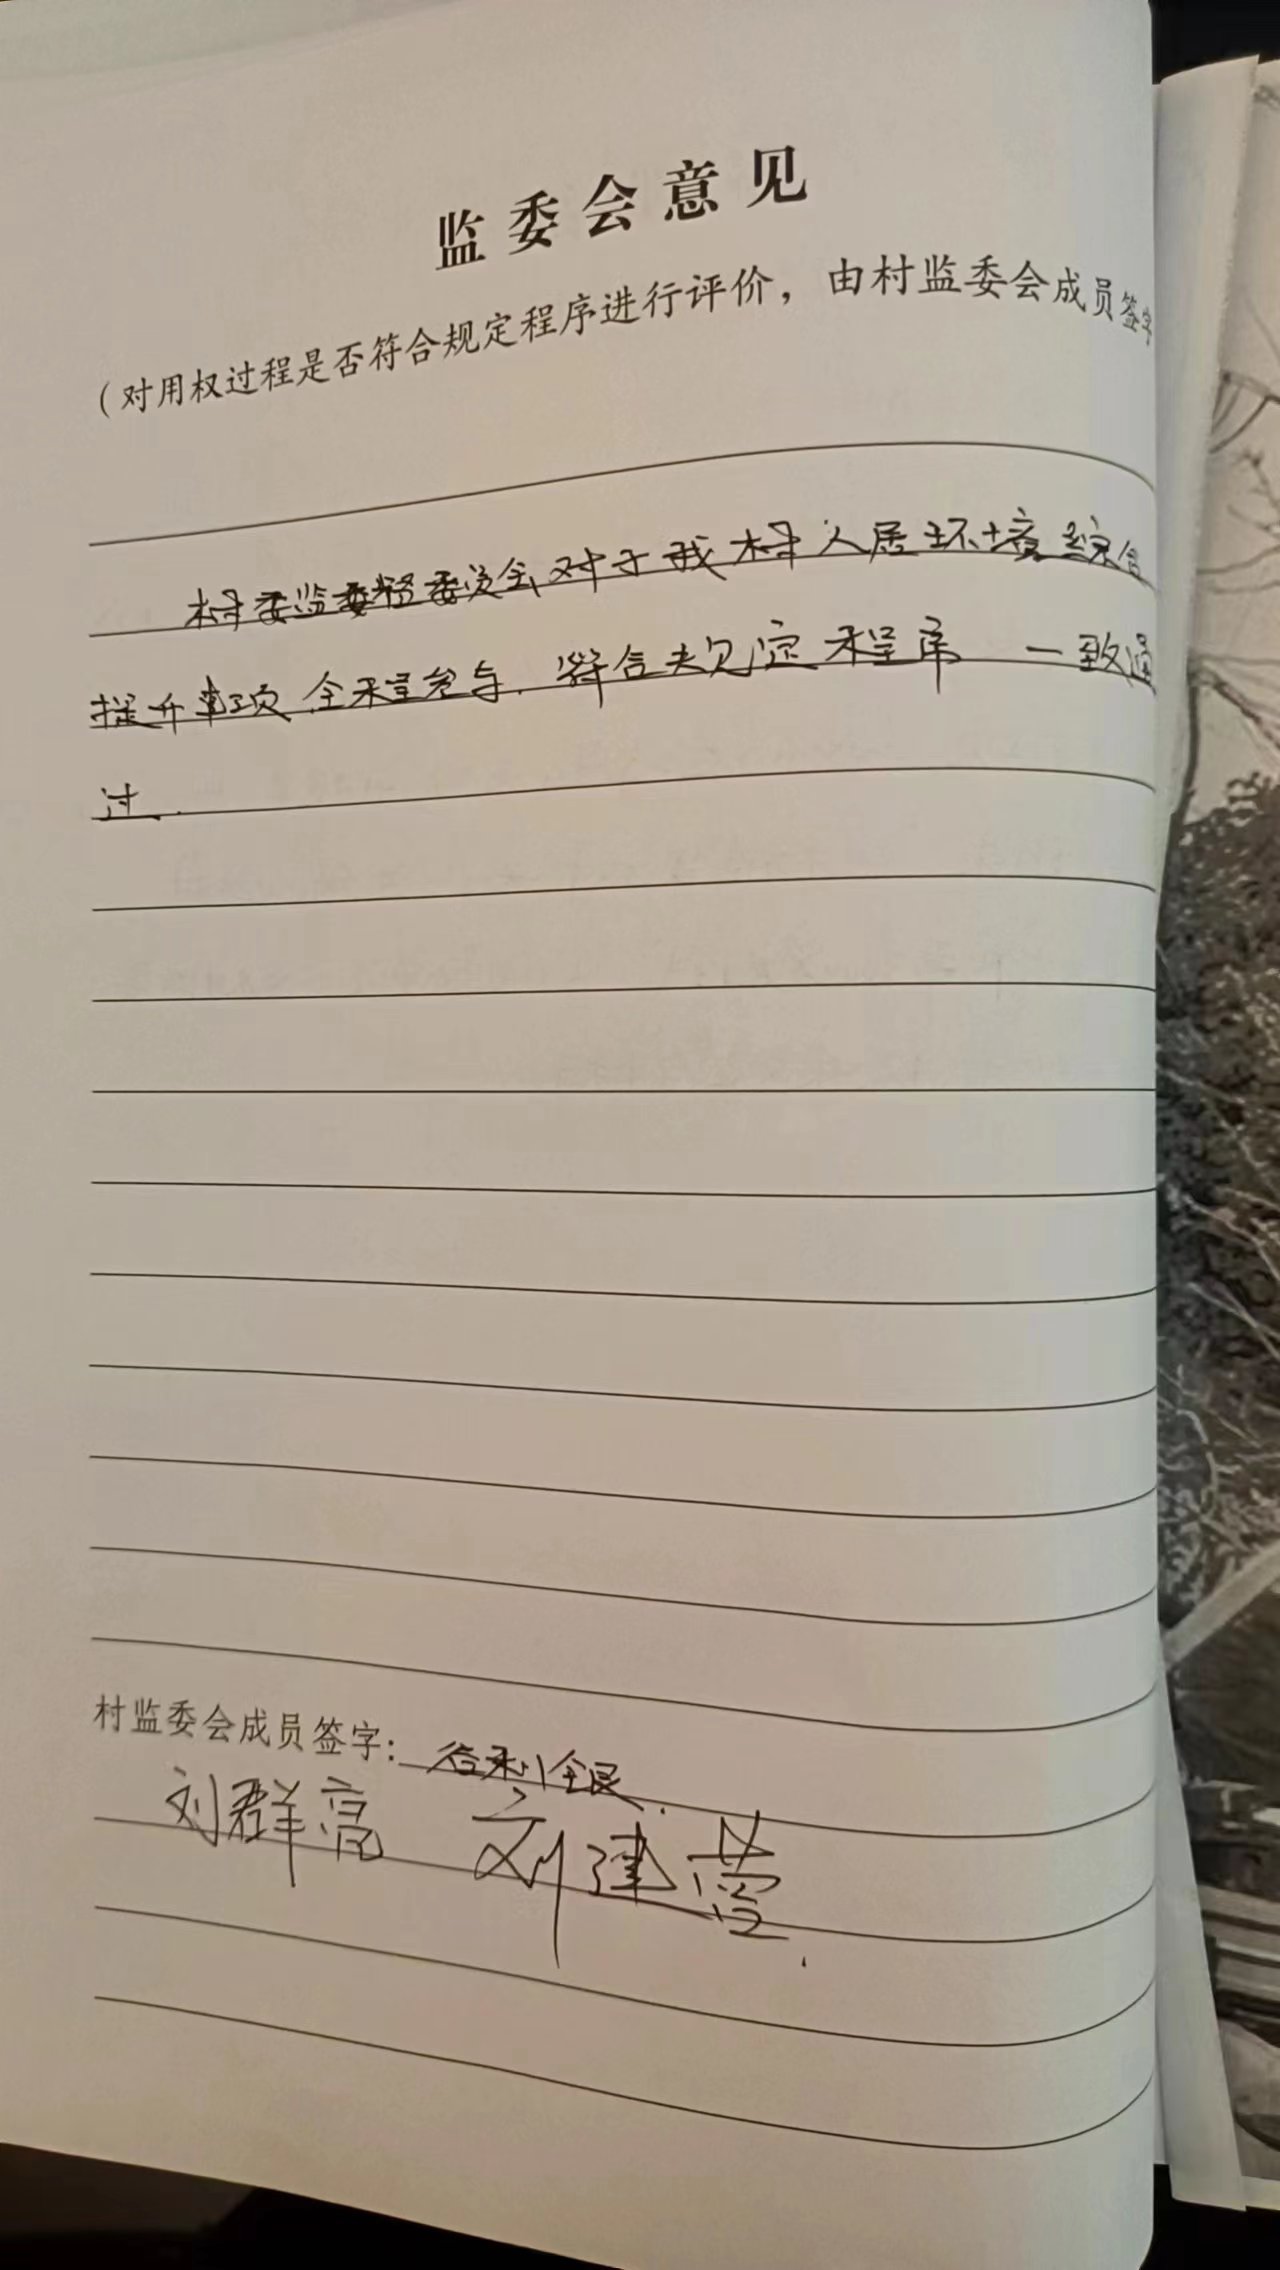 监委会意见
(对用权过程是否符合规定程序进行评价，由村监委会成员签字
村委监委督委员会对于我村人居环境综合
提升事项全程参与.符合规定程序 一致通
过.
村监委会成员签字: 谷利全民.
刘群亮 刘建营.